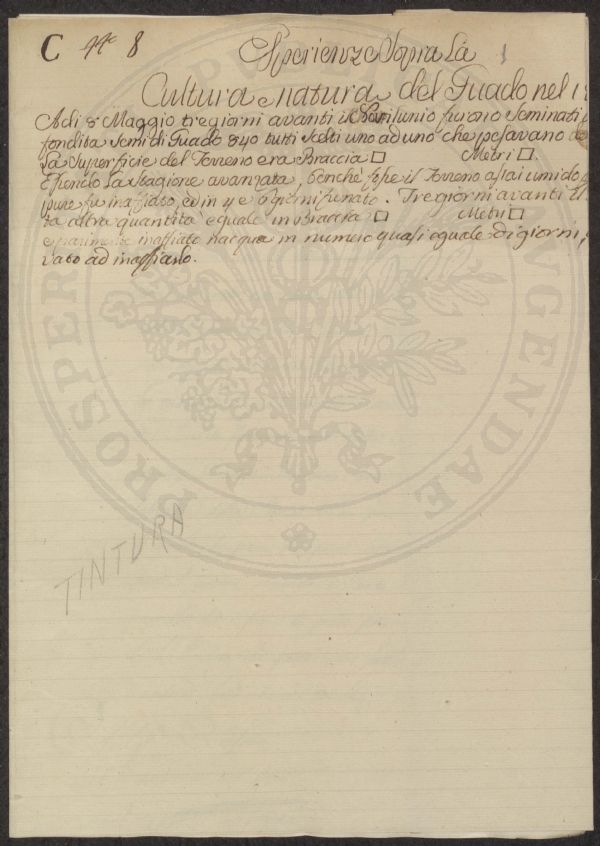 C nº 8 Sperienze Sopra La
Cultura e natura del Guado nel 1
Adi 8 Maggio tre giorni avanti il furono Seminati
fondita Semi di Guado 840 tutti Scelti uno ad uno che pesavano
La Superficie del Terreno era Braccia □ Metri □.
Essendo La Stagione avanzata, benche fosse il Terreno assai umido
pure fu inaffiato, ed in 4 e Tre giorni avanti
ta altra quantità eguale in Braccia □ Metri □
e parimente inaffiato nacque in numero quasi eguale di giorni,
vato ad inaffiarlo.
TINTURA
PROSPERITATI PUBLICAE AUGENDAE